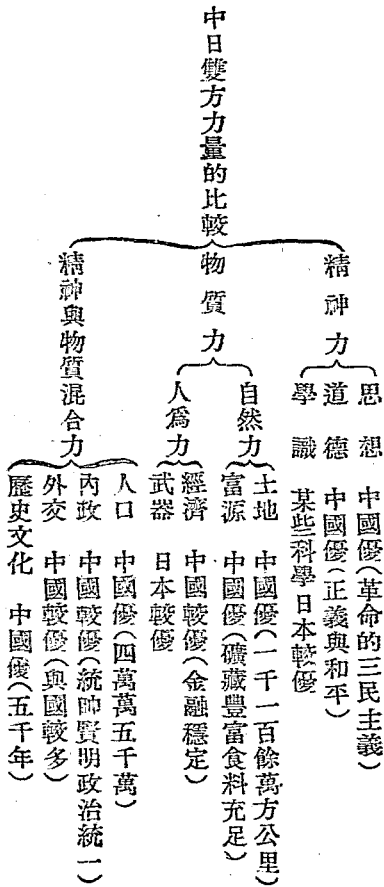 中日雙方力量的比較
精神力
思想 中國優(革命的三民主義)
道德 中國優(正義與和平)
學識 某些科學日本較優
物質力
自然力
土地 中國優(一千一百餘萬方公里)
富源 中國優(礦藏豐富食料充足)
人爲力
經濟 中國較優(金融穩定)
武器 日本較優
精神與物質混合力
人口 中國優(四萬萬五千萬)
內政 中國較優(統帥賢明政治統一)
外交 中國較優(與國較多)
歷史文化 中國優(五千年)